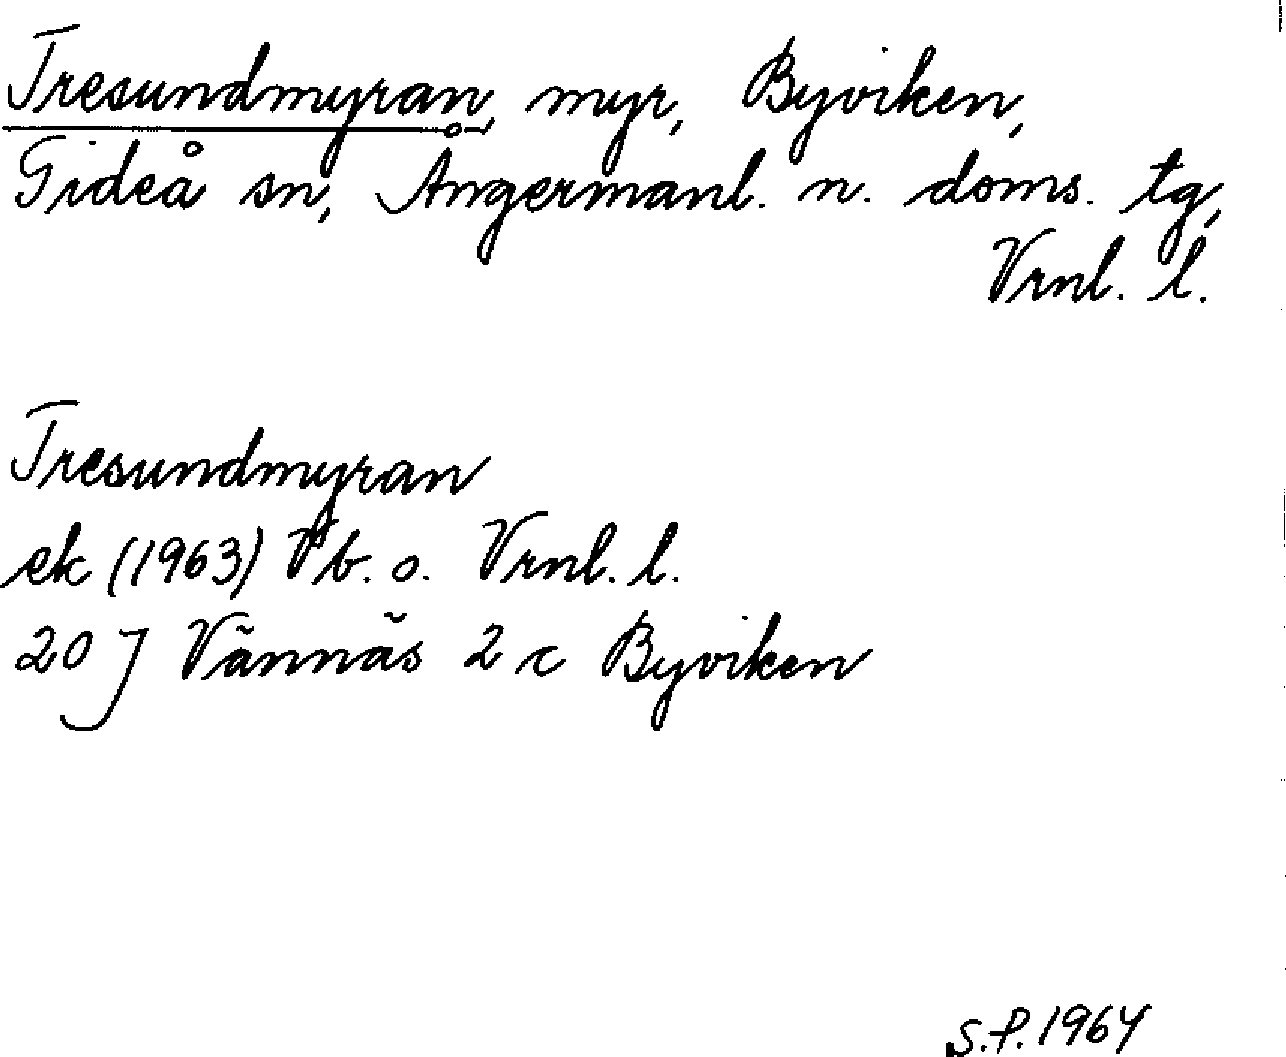 Tresundmyran, myr, Byviken,
Gideå sn, Ångermanl. n. doms. tg,
Vrnl. l.
Tresundmyran
ek (1963) Vb. o. Vrnl. l.
20 J Vännäs 2 c Byviken
S.P. 1964